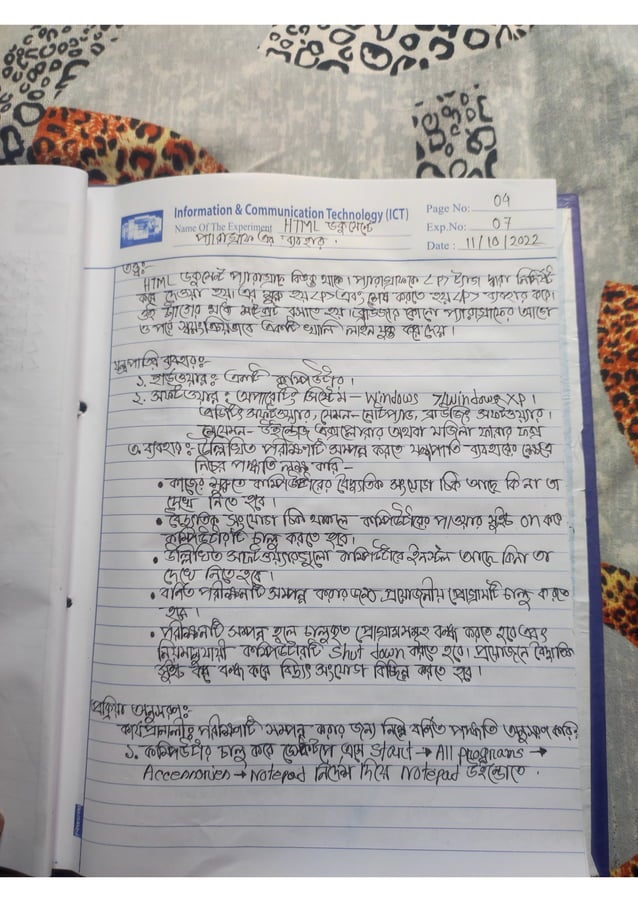 Information & Communication Technology (ICT)
Page No: 04
Name Of The Experiment HTML ডকুমেন্টে
Exp.No: 07
প্যারাগ্রাফ এর ব্যবহার.
Date : 11/10/2022
তত্ত্ব:
HTML ডকুমেন্ট প্যারাগ্রাফে বিভক্ত থাকে। প্যারাগ্রাফকে <P> ট্যাগ দ্বারা নির্দিষ্ট
করে দেওয়া হয়। এর শুরু হয় <P> এবং শেষ করতে হয় </P> ব্যবহার করে।
এই ট্যাগের মধ্যে বসাতে হয়। ব্রাউজার কোনো প্যারাগ্রাফের আগে
ও পরে স্বয়ংক্রিয়ভাবে একটি খালি লাইন যুক্ত করে দেয়।
যন্ত্রপাতির ব্যবহার:-
১. হার্ডওয়্যার: একটি কম্পিউটার।
২. সফটওয়্যার: অপারেটিং সিস্টেম - Windows 7/Windows XP।
এডিটিং সফটওয়্যার, যেমন- নোটপ্যাড, ব্রাউজিং সফটওয়্যার।
যেমন- উইন্ডোজ এক্সপ্লোরার অথবা মজিলা ফায়ার ফক্স
৩. ব্যবহার: উল্লিখিত পরীক্ষণটি সম্পন্ন করতে যন্ত্রপাতি ব্যবহারের ক্ষেত্রে
নিচের পদ্ধতি লক্ষ্য করি -
• কাজের শুরুতে কম্পিউটারের বৈদ্যুতিক সংযোগ ঠিক আছে কি না তা
দেখে নিতে হবে।
• বৈদ্যুতিক সংযোগ ঠিক থাকলে কম্পিউটারের পাওয়ার সুইচ on করে
কম্পিউটারটি চালু করতে হবে।
• উল্লিখিত সফটওয়্যারগুলো কম্পিউটারে ইনস্টল আছে কিনা তা
দেখে নিতে হবে।
• বর্ণিত পরীক্ষণটি সম্পন্ন করার জন্য প্রয়োজনীয় প্রোগ্রামটি চালু করতে
হবে।
• পরীক্ষণটি সম্পন্ন হলে চালুকৃত প্রোগ্রামসমূহ বন্ধ করতে হবে এবং
নিয়মানুযায়ী কম্পিউটারটি Shut down করতে হবে। প্রয়োজনে বৈদ্যুতিক
সুইচ বন্ধ করে বিদ্যুৎ সংযোগ বিচ্ছিন্ন করতে হবে।
প্রক্রিয়া অনুসরণ:-
কার্যপ্রণালী: পরীক্ষণটি সম্পন্ন করার জন্য নিম্নে বর্ণিত পদ্ধতি অনুসরণ করি:
১. কম্পিউটার চালু করে ডেস্কটপে এসে Start → All programs →
Accessories → Notepad নির্দেশ দিয়ে Notepad উইন্ডোতে.